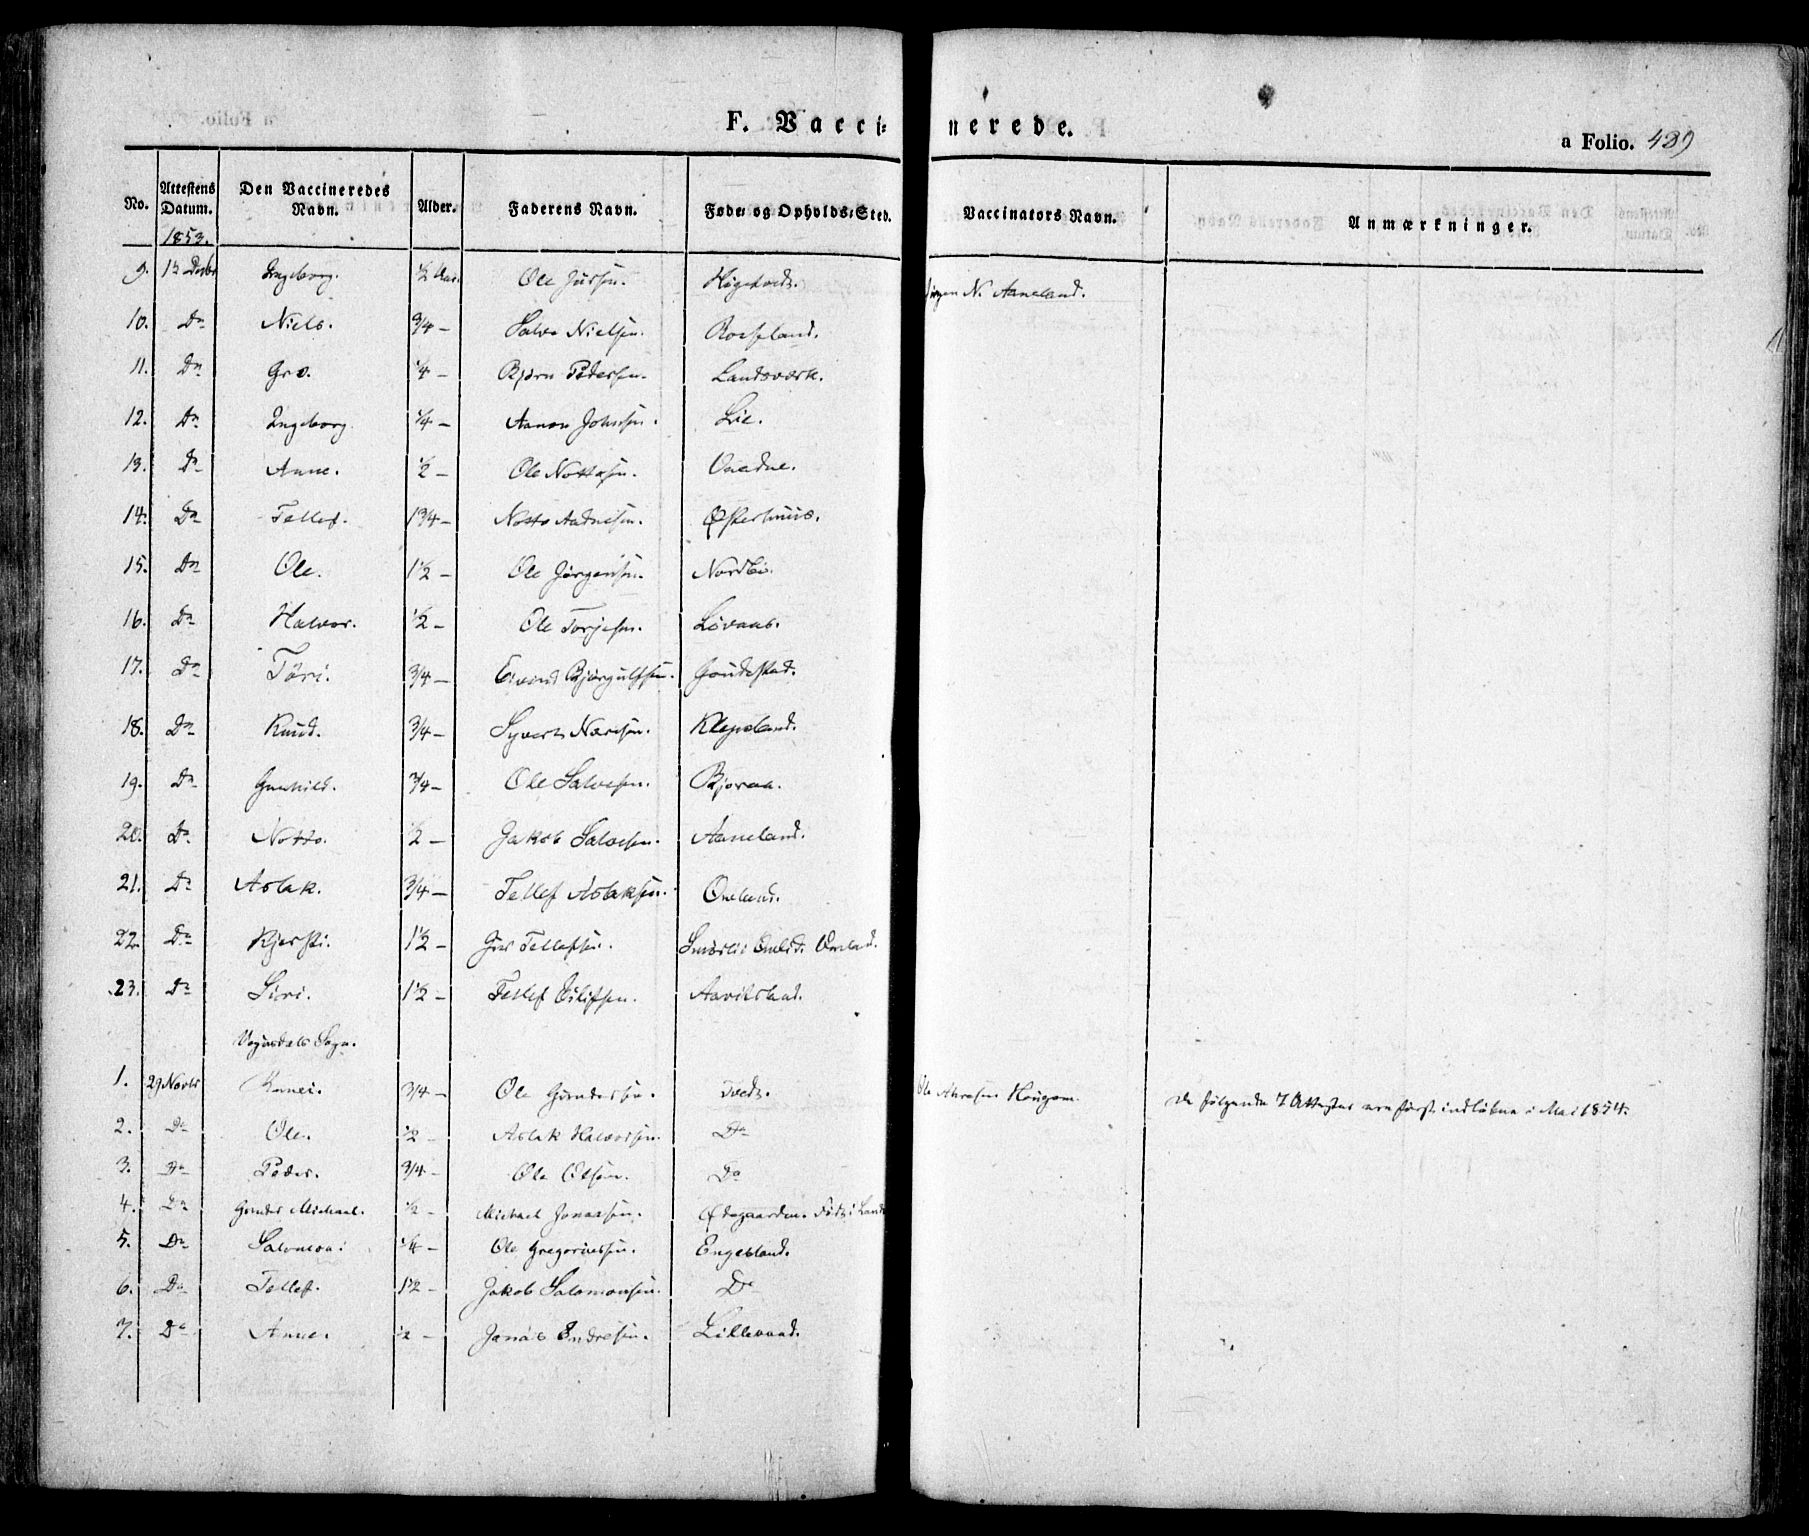 F. Vacci- nerede.
a Folio. 489
No. Attestens Datum. Den Vaccineredes Navn. Alder. Faderens Navn. Føde- og Opholds-Sted. Vaccinators Navn. Anmærkninger.
1853.
9. Ingeborg. 1/2 Aar. Ole Høgetvedt. N. Aaneland.
10. Do Niels. 3/4 – Salve Nielsen. Roseland.
11. Do Gro. 1/4 – Bjørn Pedersen. Landsværk.
12. Do Ingeborg 1/4 – Aanon Johnsen. Lie.
13. Do Anne. 1/2 – Ole Nottosen.
14. Do Tellef. 1 3/4 – Notto Aadnesen. Østerhuus.
15. Do Ole. 1 1/2 – Ole Jørgensen. Nordbø.
16. Do Halvor. 1/2 – Ole Torjesen. Løvaas.
17. Do Tøri. 3/4 – Eivind Bjørgulfsen.
18. Do Knud. 3/4 – Syvert Klepsland.
19. Do Gunhild. 3/4 – Ole Salvesen. Bjoraa.
20. Do Notto. 1/2 – Jakob Salvesen. Aaneland.
21. Do Aslak. 3/4 – Tellef Aslaksen. Omland.
22. Do Kjersti. 1 1/2 – Tellefsen. Omland.
23. Do Siri. 1 1/2 – Tellef Eilifsen. Aavitsland.
Vegusdals Sogn.
1. 29 Novbr 3/4 – Ole Gundersen. Tvedt. Ole Haugom. De følgende 7 Attester ere først indløbne i Mai 1854.
2. Do Ole. 1/2 – Aslak Halvorsen. Do
3. Do Peder. 3/4 – Ole Olsen. Do
4. Do Gunder Michael. 1/2 – Michael Jonassen. Ødegaarden. Født i
5. Do Salomon. 1/4 – Ole Gregoriussen. Engesland.
6. Do Tellef. 1 1/2 – Jakob Salomonsen. Do
7. Do Anne. 1/2 – Jonas Endresen. Lillevand.